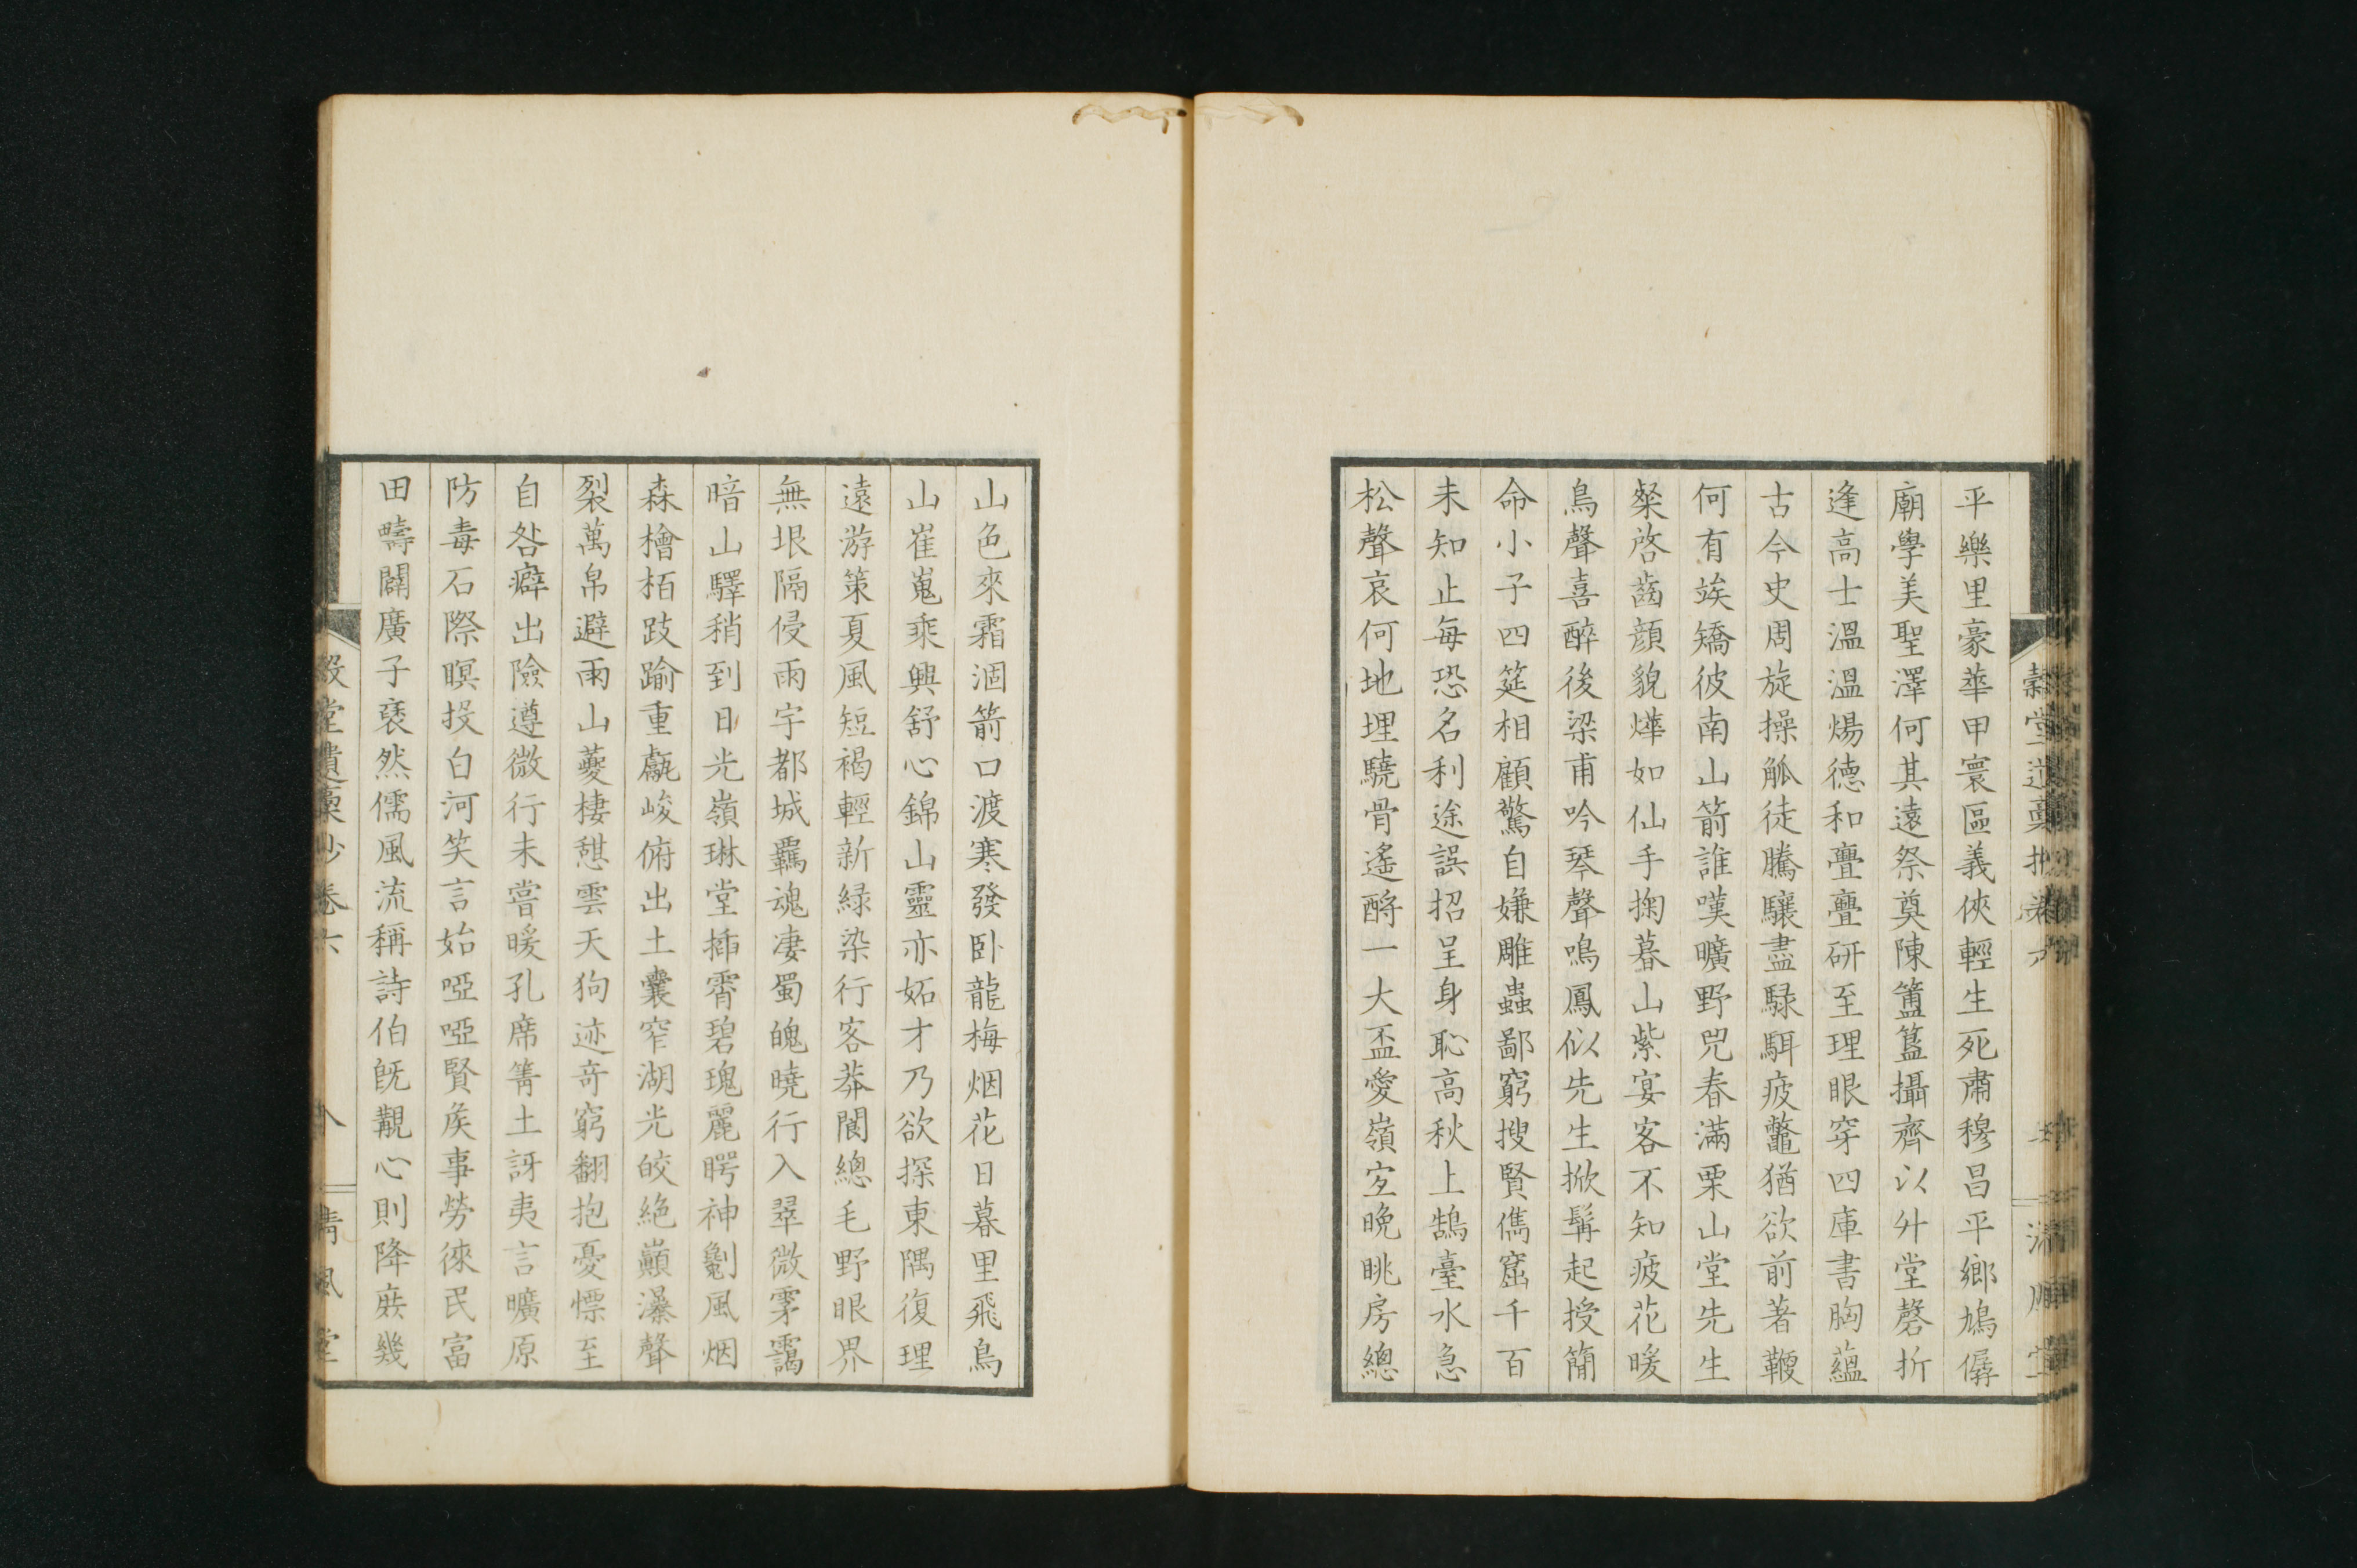 平樂里豪華甲寰區義俠輕生死肅穆昌平鄉鳩僝
廟學美聖澤何其遠祭奠陳簠簋攝齊以升堂磬折
逢高士溫溫煬德和亹亹研至理眼穿四庫書胸蘊
古今史周旋操觚徒騰驤盡騄駬疲鼈猶欲前著鞭
何有竢矯彼南山箭誰嘆曠野兕春滿栗山堂先生
粲啓齒顏貌燁如仙手掬暮山紫宴客不知疲花暖
鳥聲喜醉後梁甫吟琴聲鳴鳳似先生掀髯起授簡
命小子四筵相顧驚自嫌雕蟲鄙窮搜賢儁窟千百
未知止每恐名利途誤招呈身恥高秋上鵠臺水急
松聲哀何地埋驍骨遙酹一大盃愛嶺寅晚眺房總
山色來霜涸箭口渡寒發臥龍梅烟花日暮里飛鳥
山崔嵬乘興舒心錦山靈亦妬才乃欲探東隅復理
遠游策夏風短褐輕新綠染行客莽閬總毛野眼界
無垠隔侵雨宇都城羈魂凄蜀魄曉行入翠微雺靄
暗山驛稍到日光嶺琳堂插霄碧瑰麗愕神剜風烟
森檜栢跂踰重甗峻俯出土囊窄湖光皎絕巔瀑聲
裂萬帛避雨山夔棲憇雲天狗迹奇窮翻抱憂慓至
自咎癖出險遵微行未嘗暖孔席箐土訝夷言曠原
防毒石際瞑投白河笑言始啞啞賢矦事勞徠民富
田疇闢廣子裒然儒風流稱詩伯旣覯心則降庶幾
穀堂遺稾抄卷六
八
清風堂